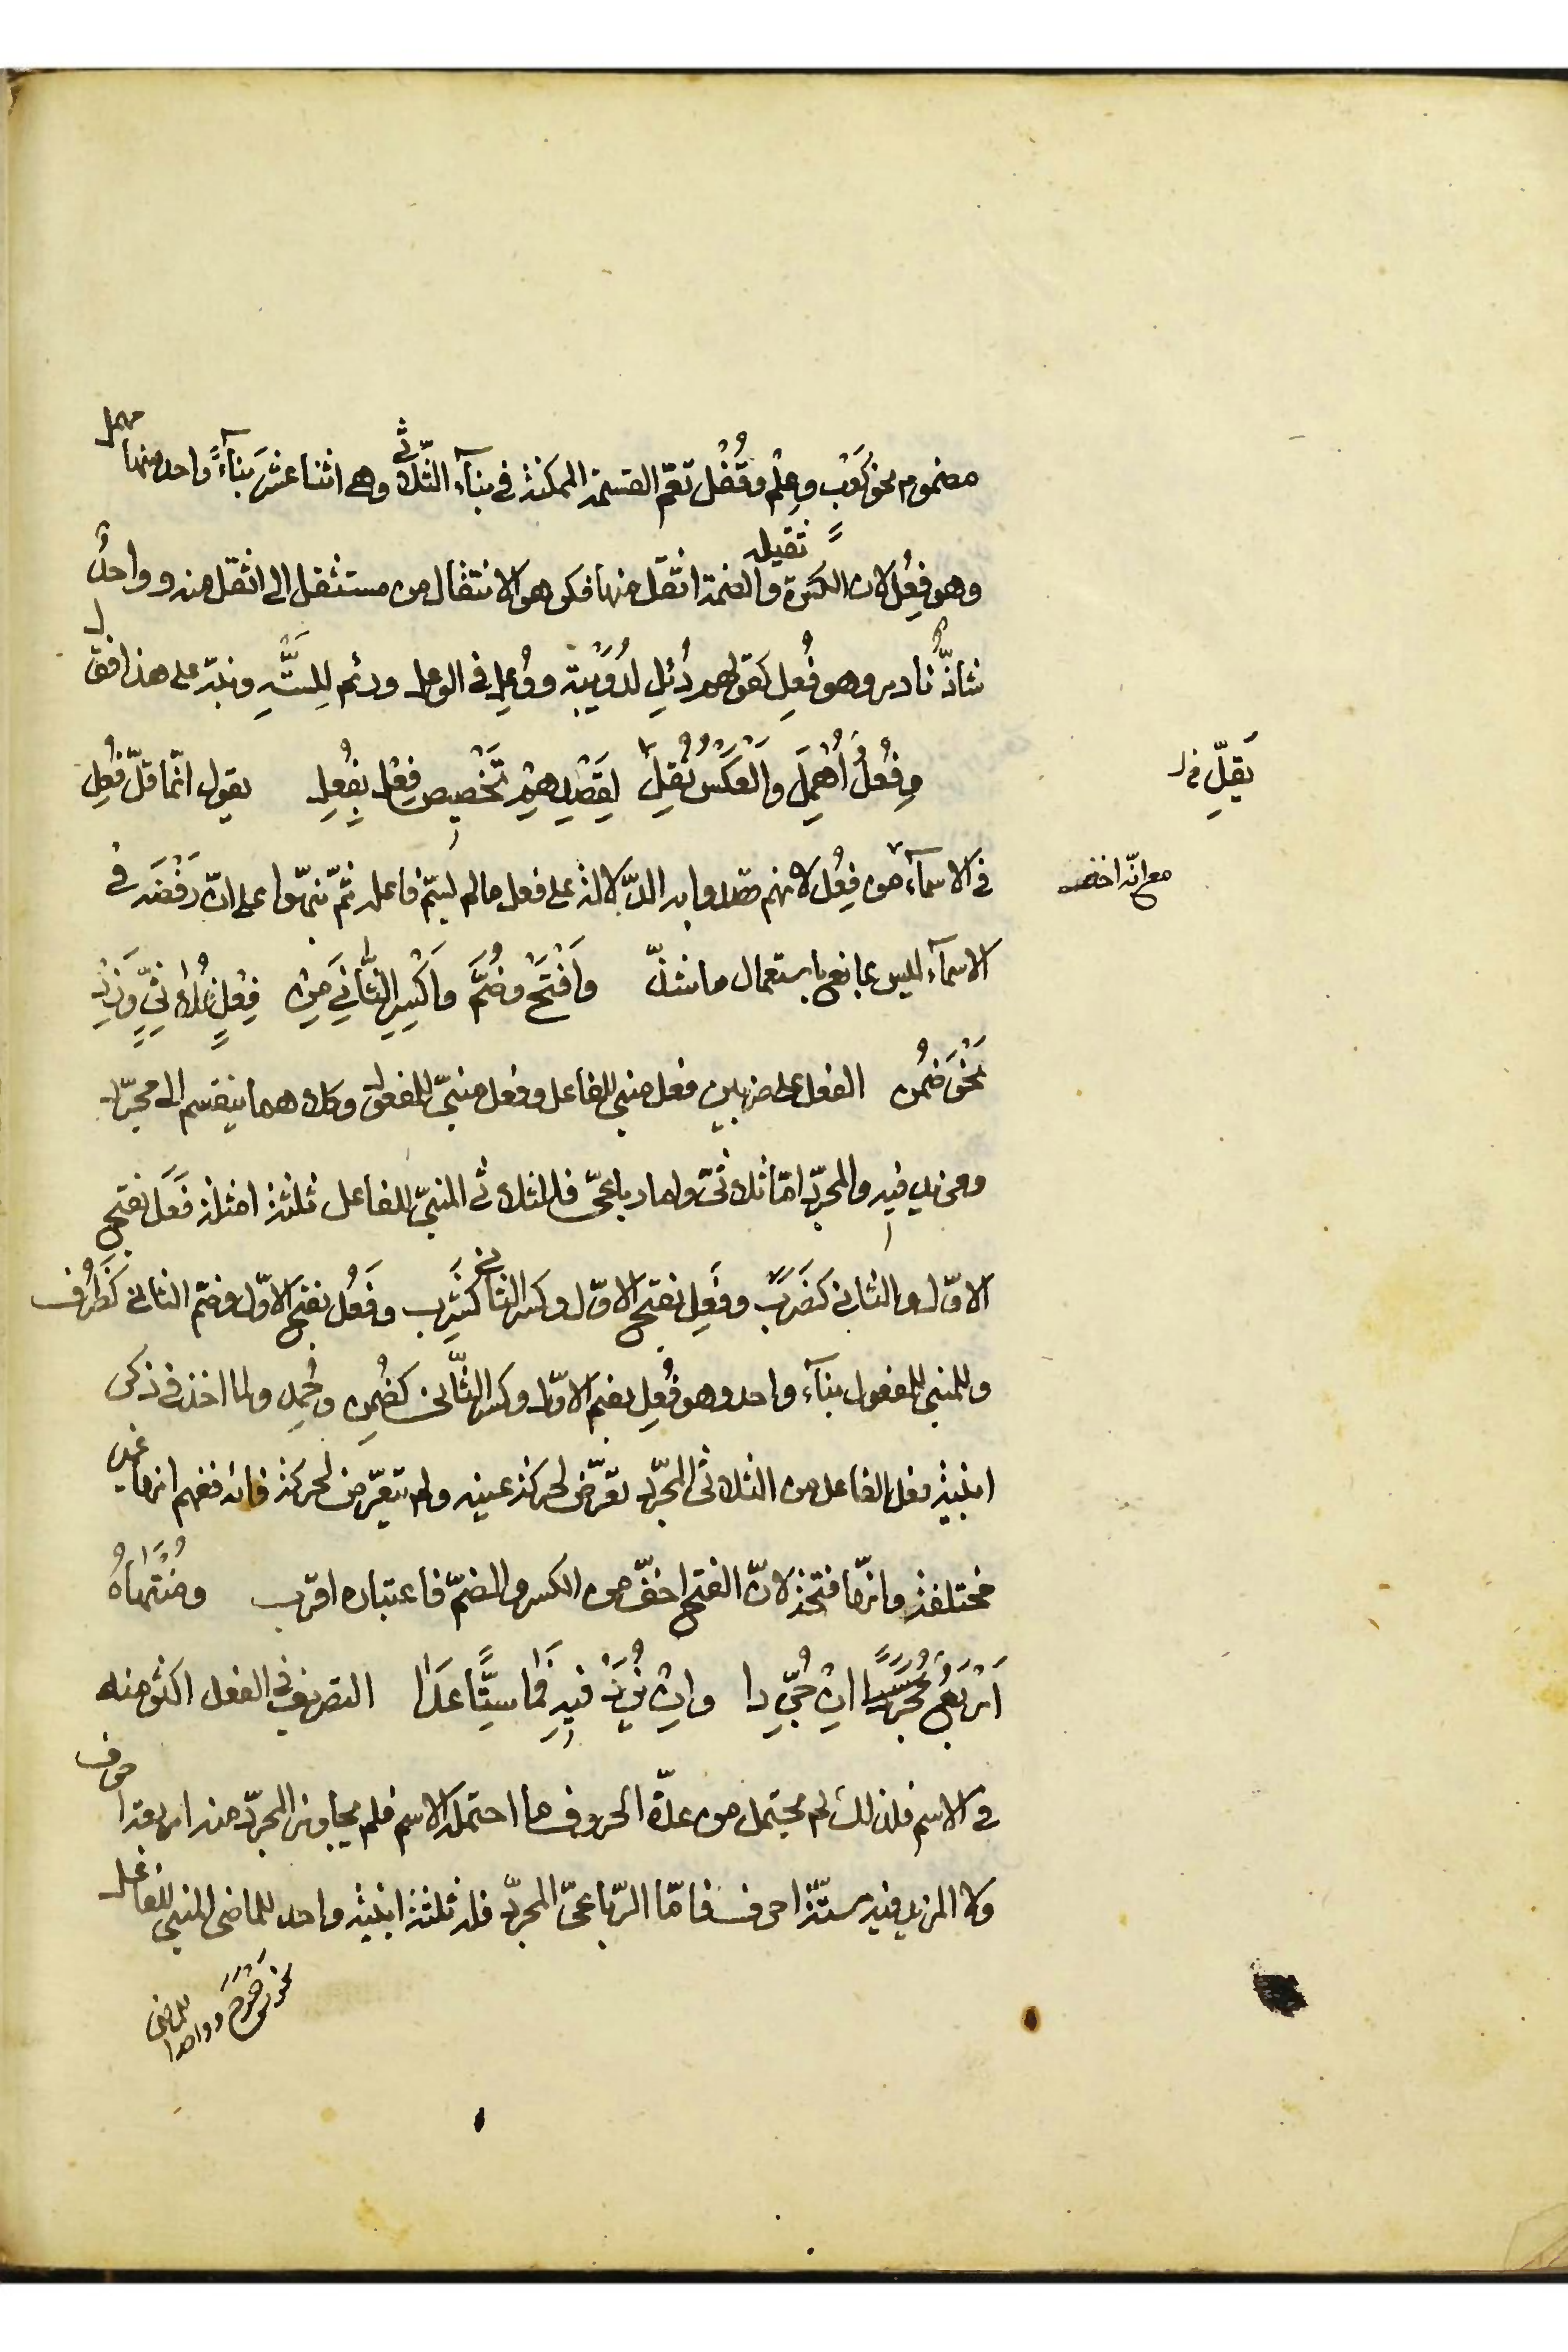 مضموم نحو كَعْب وعِلْم وقُفْل تعمّ القسمة الممكنة فى بناء الثّلاثى وهى اثنا عشَر بناءً واحد منها مهمل
وهو فِعُل لان الكسرة ثقيلة والضمة اثقل منها فكرهوا الانتقال من مستثقل الى اثقل منه وواحدٌ
شاذّ نادر وهو فُعِل كقولهم دُئِل لدُوَيْبة ووُعِل فى الوعل ورئم للسَّتَّه ونبّه على هذا فقال
وفِعُلٌ أُهْمِلَ وَالْعَكْسُ يُقِلّ لِقَصْدِهِمْ تَخْصِيصَ فِعْلٍ بِفُعِل يقول انّما قلّ فُعِل
يَقِلّ
فى الاسماء من فِعُل لانهم قصدوا به الدّلالة على فعل ما لم يسمّ فاعله ثمّ نبّهوا على انّ رَفْضَه فى
مع انّه اخف
الاسماء ليس بمانع باستعمال ما شذّ وَافْتَحْ وضُمَّ وَاكْسِرِ الثَّانِيَ مِنْ فِعْلٍ ثُلَاثِيٍّ وَزِدْ
نَحْوَ ضُمِن الفعل على ضربين فعل مبنى للفاعل وفعل مبنىّ للمفعول وكلاهما ينقسم الى مجرّد
ومزيد فيه والمجرّد امّا ثلاثىّ واما رباعىّ فللثلاثى المبنىّ للفاعل ثلثة امثلة فَعَل بفتح
الاوّل والثانى كضَرَب وفَعِل بفتح الاوّل وكسر الثانى كشَرِب وفَعُل بفتح الاوّل وضمّ الثانى كَظَرُف
وللمبنى للمفعول بناء واحد وهو فُعِل بضم الاوّل وكسر الثّانى كضُمِن وحُمِد ولما اخذ فى ذكر
ابنية فعل الفاعل من الثلاثى المجرّد تعرّض لحركة عينه ولم يتعرّض لحركة فائه ففهم انها غير
مختلفة وانّها فتحة لانّ الفتح اخفّ من الكسر والضمّ فاعتباره اقرب ومُنْتَهَاهُ
أَرْبَعٌ إِنْ جُرِّدَا وإِنْ يُزَدْ فِيهِ فَمَا سِتًّا عَدَا التصريف فى الفعل اكثر منه
فى الاسم فلذلك لم يحتمل من عدّة الحروف ما احتمله الاسم فلم يجاوز المجرّد منه اربعة احرف
ولا المزيد فيه ستّة احرف فامّا الرّباعىّ المجرّد فله ثلثة ابنية واحد للماضى المبنى للفاعل
نحو دَحْرَجَ وواحد للماضى